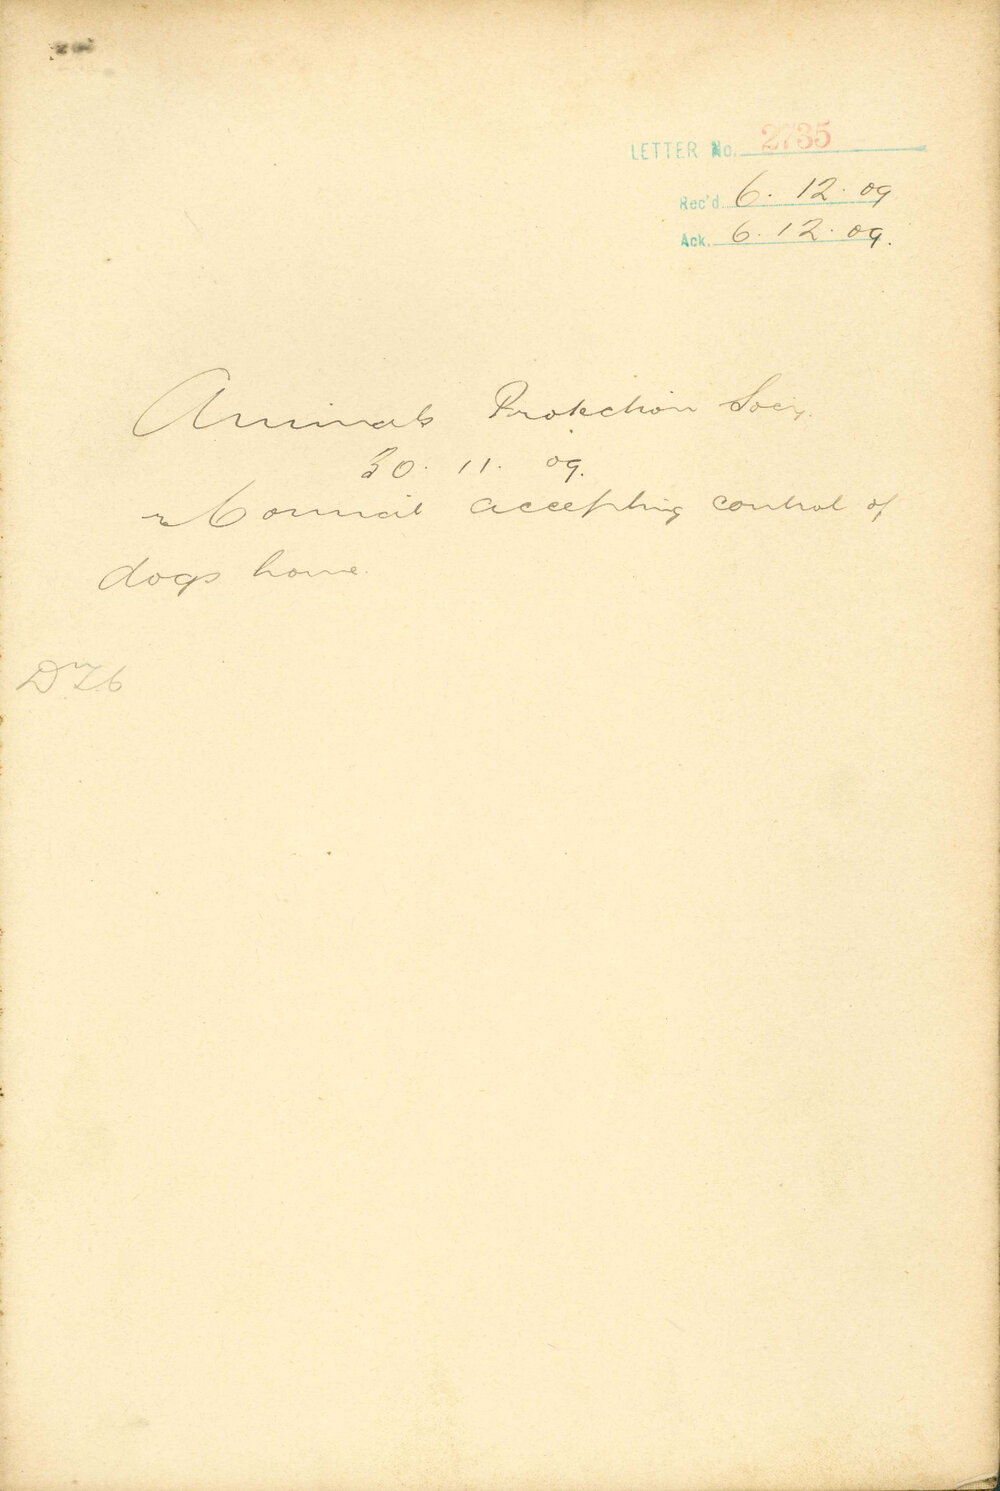 LETTER No. 2735
Rec'd 6. 12. 09
Ack. 6. 12. 09.
Animals Protection Socy.
30. 11. 09.
re Council accepting control of
dogs home.